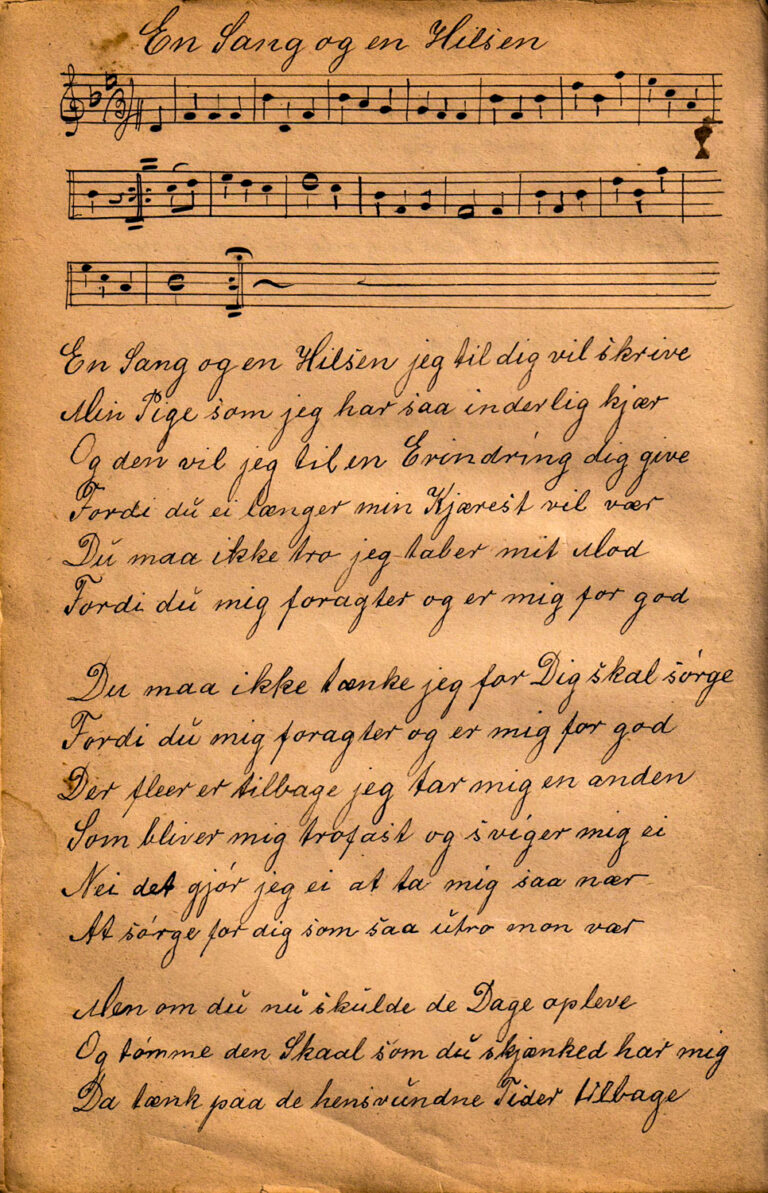 En Sang og en Hilsen
En Sang og en Hilsen jeg til dig vil skrive
Min Pige som jeg har saa inderlig kjær
Og den vil jeg til en Erindring dig give
Fordi du ei længer min Kjærest vil vær
Du maa ikke tro jeg taber mit Mod
Fordi du mig foragter og er mig for god
Du maa ikke tænke jeg for Dig skal sørge
Fordi du mig foragter og er mig for god
Der fleer er tilbage jeg tar mig en anden
Som bliver mig trofast og sviger mig ei
Nei det gjør jeg ei at ta mig saa nær
At sørge for dig som saa utro mon vær
Men om du nu skulde de Dage opleve
Og tømme den Skaal som du skjænked har mig
Da tænk paa de hensvundne Tider tilbage